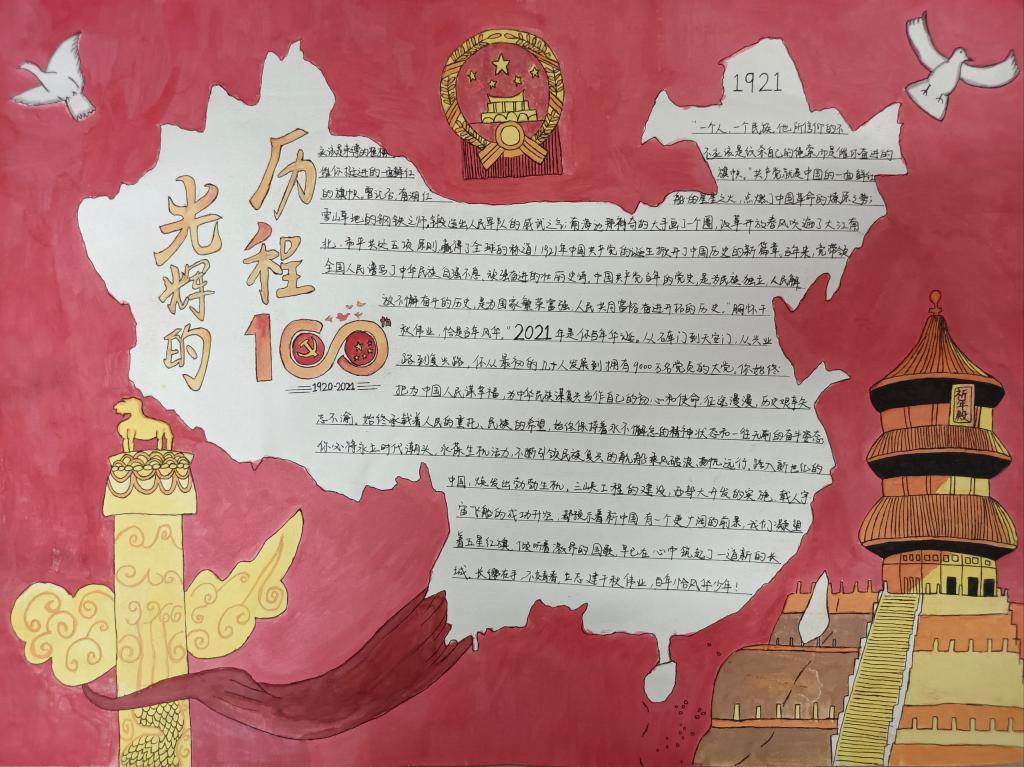 光辉的
历程
100
1920-2021
1921
"一个人,一个民族,他所信仰的不
不应该是纹杀自己的绳索,而是催你奋进的
旗帜。"共产党就是中国的一面鲜红
催你推进的一面鲜红
的旗帜。曾记否,南湖红
船的星星之火,点燃了中国革命的燎原之势;
雪山草地的钢铁之师,锻造出人民军队的威武之气;南海边那神奇的大手画了个圈,改革开放春风吹遍了大江南
北。和平共处五项原则,赢得了全球的掌声!1921年中国共产党的诞生掀开了中国历史的新篇章,百年来,党带领
全国人民谱写了中华民族自强不息、顽强奋进的壮丽史诗。中国共产党百年的党史,是为民族独立、人民解
放不懈奋斗的历史,是为国家繁荣富强、人民共同富裕奋进开拓的历史。"胸怀千
秋伟业,恰是百年风华。"2021年是你百年华诞。从石库门到天安门,从兴业
路到复兴路,你从最初的几十人发展到拥有9000万名党员的大党,你始终
把为中国人民谋幸福,为中华民族谋复兴当作自己的初心和使命,征途漫漫,历史艰辛矢
志不渝。始终承载着人民的重托、民族的希望,始终保持着永不懈怠的精神状态和一往无前的奋斗姿态
你必将永立时代潮头,永葆生机活力,不断引领民族复兴的航船乘风破浪、扬帆远行。踏入新世纪的
中国,焕发出勃勃生机。三峡工程的建设,西部大开发的实施,载人宇
宙飞船的成功升空,都预示着新中国有一个更广阔的前景,我们凝望
着五星红旗,倾听着激昂的国歌,早已在心中筑起了一道新的长
城。长缨在手,立志建千秋伟业,百年恰风华少年!
祈年殿